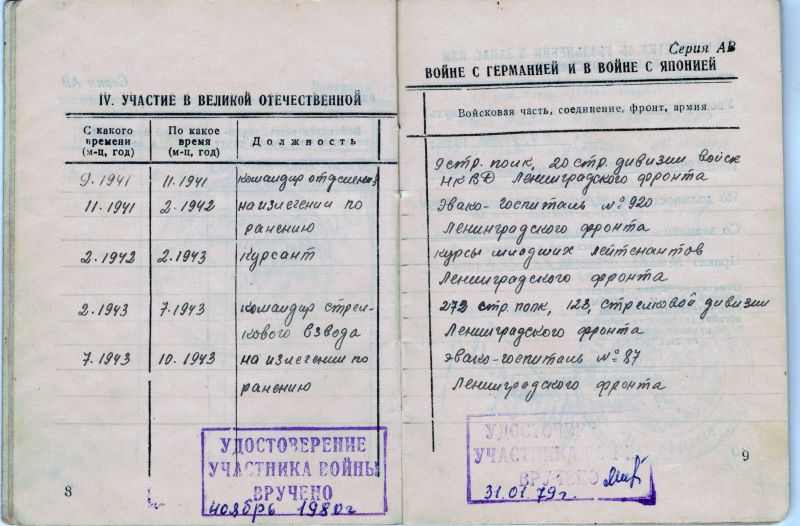 IV. УЧАСТИЕ В ВЕЛИКОЙ ОТЕЧЕСТВЕННОЙ
С какого времени (м-ц, год)
По какое время (м-ц, год)
Должность
9.1941 11.1941 командир отделения
11.1941 2.1942 на излечении по
ранению
2.1942 2.1943 Курсант
2.1943 7.1943 командир стрел-
кового взвода
7.1943 10.1943 на излечении по
ранению
УДОСТОВЕРЕНИЕ
УЧАСТНИКА ВОЙНЫ
ВРУЧЕНО
ноябрь 1980г
8
Серия АВ
ВОЙНЕ С ГЕРМАНИЕЙ И В ВОЙНЕ С ЯПОНИЕЙ
Войсковая часть, соединение, фронт, армия
9 стр. полк, 20 стр. дивизии войск
НКВД Ленинградского фронта
Эвако-госпиталь № 920
Ленинградского фронта
Курсы младших лейтенантов
Ленинградского фронта
272 стр. полк, 128, стрелковой дивизии
Ленинградского фронта
Эвако-госпиталь № 87
Ленинградского фронта
УЧАСТНИКА
ВРУЧЕНО
31.01.79г.
9